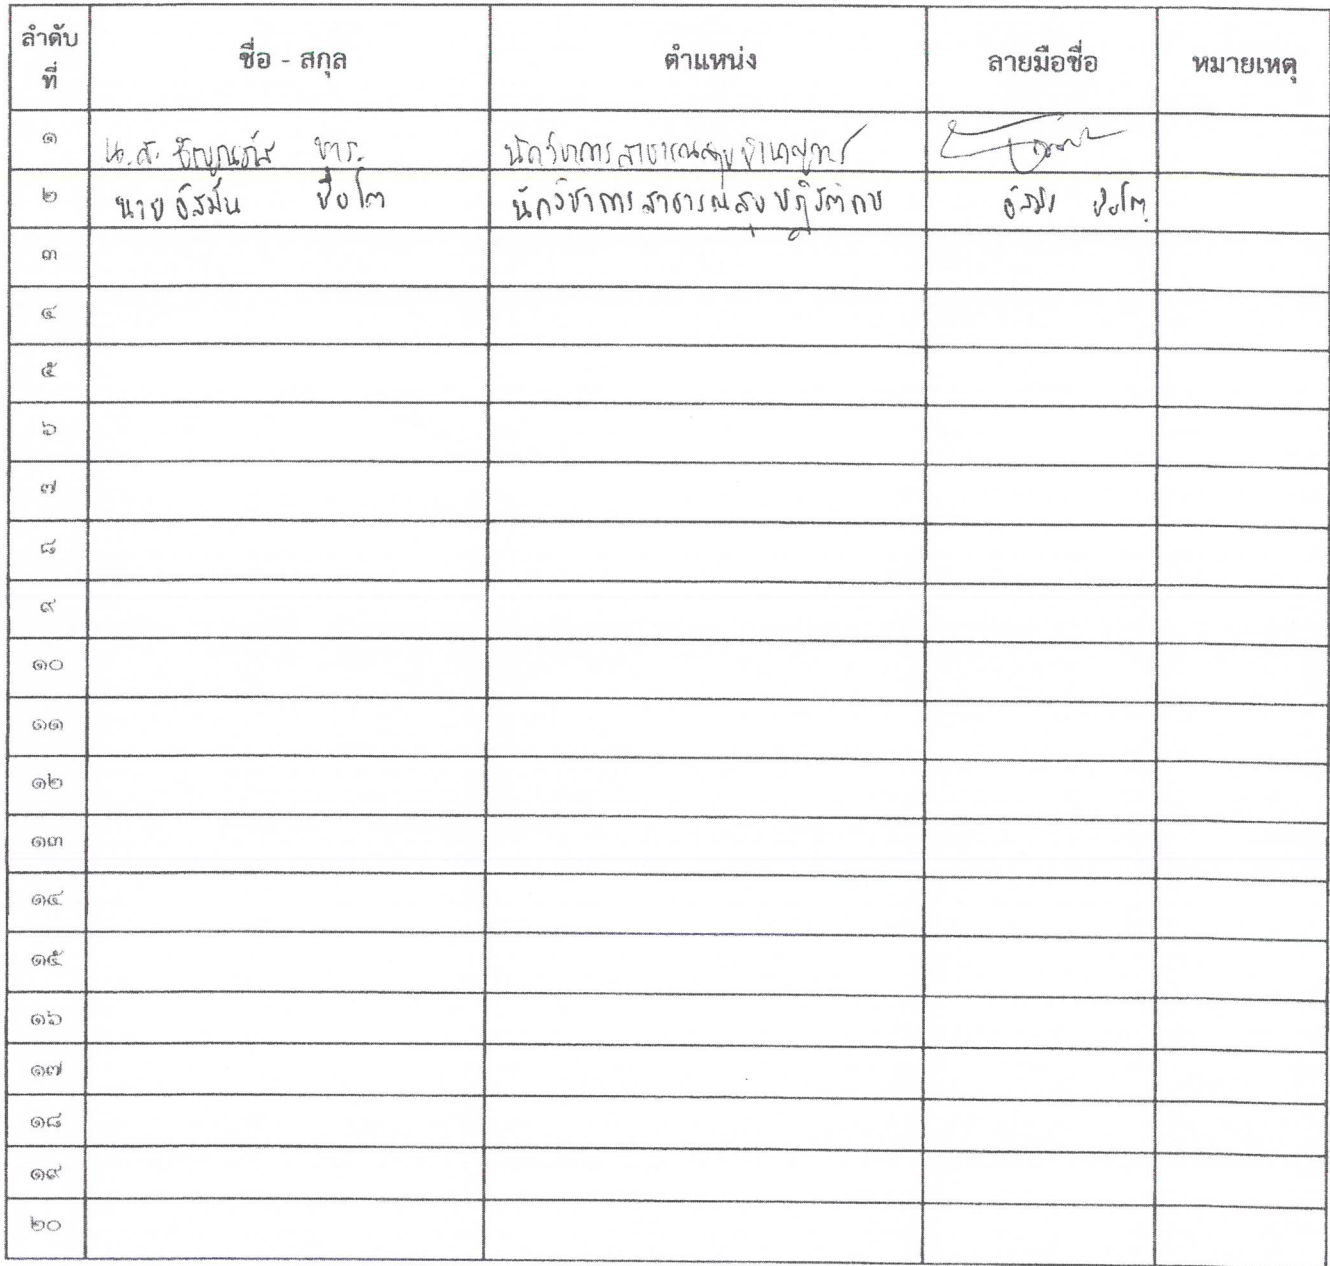 ลำดับ
ที่
ชื่อ - สกุล ตำแหน่ง ลายมือชื่อ หมายเหตุ
๑ น.ส. นักวิชาการสาธารณสุขชำนาญการ
๒ นาย อัสมัน ยือโต นักวิชาการสาธารณสุขปฏิบัติการ อัสมัน ยือโต
๓
๔
๕
๖
๗
๘
๙
๑๐
๑๑
๑๒
๑๓
๑๔
๑๕
๑๖
๑๗
๑๘
๑๙
๒๐